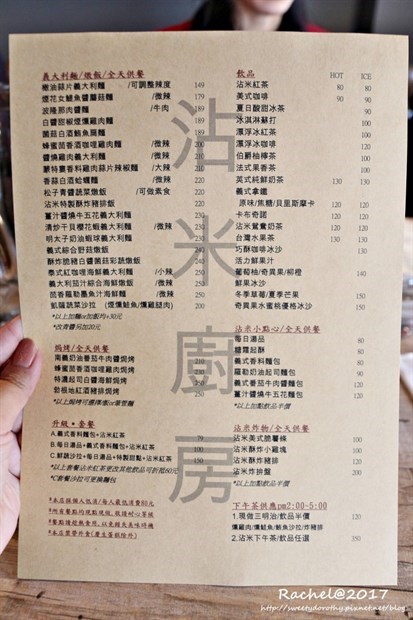 義大利麵/燉飯/全天供餐
橄油蒜片義大利麵 /可調整辣度 149
煙花女鯷魚醬蘑菇麵 /微辣 179
波隆那肉醬麵 /牛肉 189
白醬甜椒煙燻雞肉麵 189
菌菇白酒鮪魚腸麵 189
蜂蜜茴香酒咖哩雞肉麵 /微辣 200
醬燒雞肉義大利麵 /大辣 210
蒙特婁香料雞肉蒜片辣椒麵 /大辣 210
香蒜白酒蛤蠣麵 /微辣 220
松子青醬蔬菜燉飯 /可做素食 220
沾米特製酥炸豬排飯 220
薑汁醬燒牛五花義大利麵 220
清炒干貝櫻花蝦義大利麵 /微辣 230
明太子奶油蝦球義大利麵 230
義式綜合野菇燉飯 230
酥炸脆豬白醬菌菇彩蔬燉飯 230
泰式紅咖哩海鮮義大利麵 /小辣 250
義大利茄汁綜合海鮮燉飯 /微辣 250
茴香羅勒墨魚汁海鮮麵 /微辣 250
凱薩蔬菜沙拉 (煙燻鮭魚/燻雞腿肉) 200
*以上加麵or加飯均+30元
*改青醬另加20元
焗烤/全天供餐
南義奶油番茄牛肉醬焗烤 210
蜂蜜茴香酒咖哩雞肉焗烤
特濃起司白醬海鮮焗烤 250
勃根地紅酒豬排焗烤 250
*以上焗烤可選擇飯or筆管麵
升級‧套餐
A.義式香料麵包+沾米紅茶 79
B.每日湯品+義式香料麵包+沾米紅茶 100
C.鮮蔬沙拉+每日湯品+特製甜點+沾米紅茶 150
*以上套餐沾米紅茶更改其他飲品可折抵60元
*C套餐沙拉可更換麵包
*本店採個人低消/每人最低消費80元
*本店禁帶外食(慶生蛋糕除外)
沾米廚房
飲品 HOT ICE
沾米紅茶 80 80
美式咖啡 90 90
夏日酸甜冰茶 90
冰淇淋蘇打 100
漂浮冰紅茶 120
漂浮冰咖啡 120
伯爵柚檸茶 120
法式果香茶 120
英式純鮮奶茶 130 130
義式拿鐵
原味/焦糖/貝里斯摩卡 120 120
卡布奇諾 120
沾米鴛鴦奶茶 120 120
台灣水果茶 130 130
巧酥咖啡冰沙 130
活力鮮果汁 130
葡萄柚/奇異果/柳橙 140
鮮果冰沙
冬季草莓/夏季芒果 150
奇異果水蜜桃優格冰沙 150
沾米小點心/全天供餐
每日湯品 80
糖霜起酥 80
義式香料麵包 90
羅勒奶油起司麵包 90
義式番茄牛肉醬麵包 120
薑汁醬燒牛五花麵包 120
*以上加點飲品半價
沾米炸物/全天供餐
沾米美式脆薯條 100
沾米酥炸小雞塊 100
沾米酥炸豬排 120
沾米炸拚盤 200
*以上加點飲品半價
下午茶供應pm2:00-5:00
1.現做三明治/飲品半價 120
燻雞肉/燻鮭魚/鮪魚沙拉/炸豬排
2.沾米下午茶/飲品任選 350
Rachel@2017
http://sweetydorothy.pixnet.net/blog